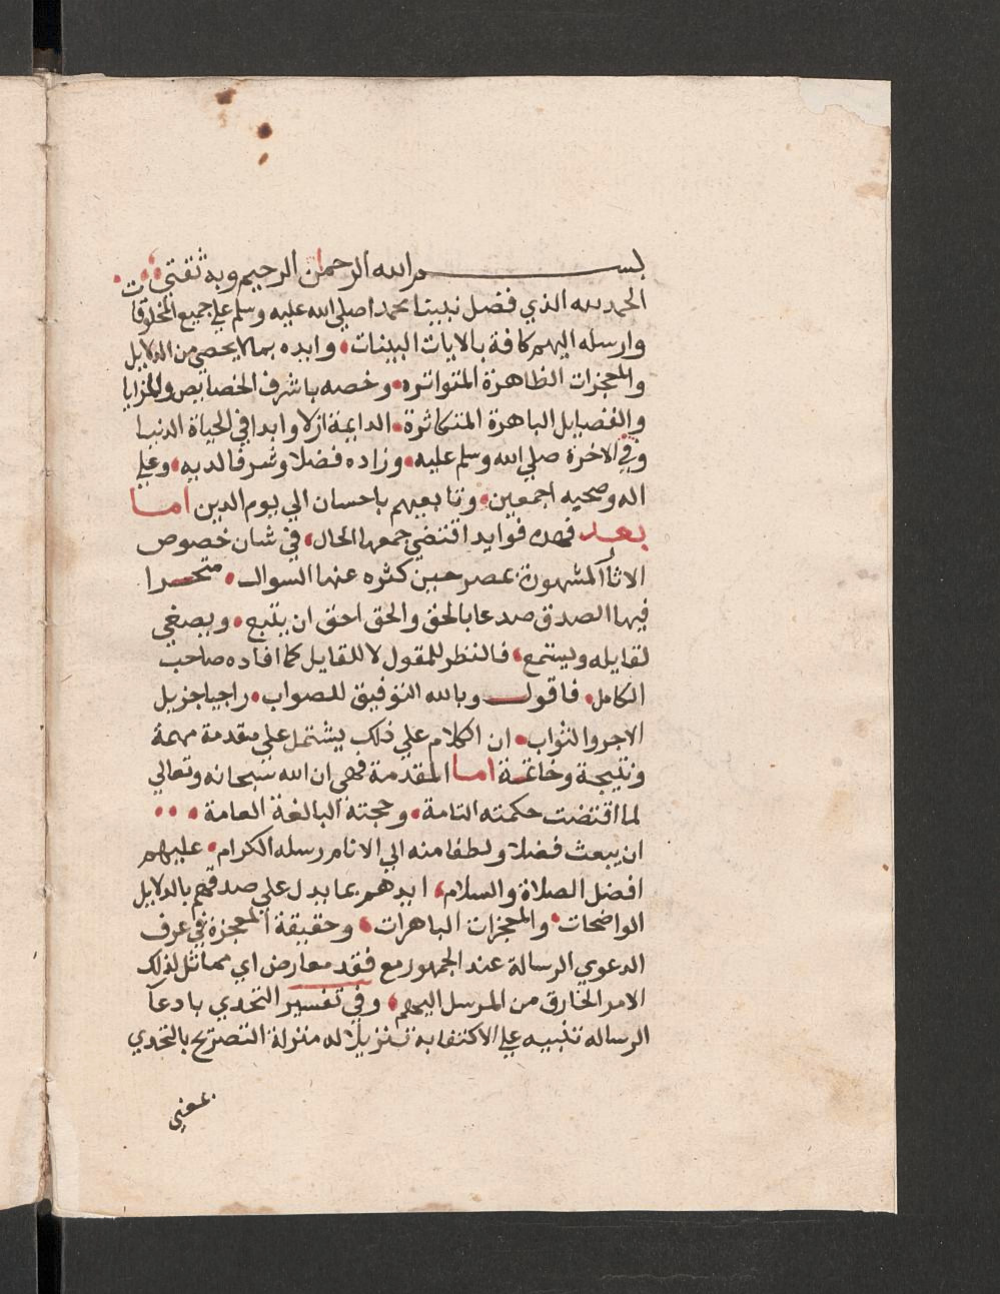 بسم الله الرحمن الرحيم وبه ثقتي
الحمد لله الذي فضل نبينا محمدا صلي الله عليه وسلم علي جميع المخلوقات
وارسله اليهم كافة بالايات البينات، وايده بما لا يحصي من الدلايل
والمعجزات الظاهرة المتواتره، وخصه باشرف الخصايص والمزايا
والفضايل الباهرة المتكاثرة، الدايمة ازلا وابدا في الحياة الدنيا
وفي الاخرة صلي الله وسلم عليه، وزاده فضلا وشرفا لديه، وعلي
اله وصحبه اجمعين، وتابعيهم باحسان الي يوم الدين اما
بعد فهده فوايد اقتضي جمعها الحال، في شان خصوص
الاثار المشهورة بمصر حين كثره عنها السوال، متحريا
فيها الصدق صدعا بالحق والحق احق ان يتبع، ويصغي
لقايله ويستمع، فالنظر للمقول لا للقايل كما افاده صاحب
الكامل، فاقول وبالله التوفيق للصواب، راجيا جزيل
الاجر والثواب، ان الكلام علي ذلك يشتمل علي مقدمة مهمة
ونتيجة وخاتمة اما المقدمة فهي ان الله سبحانه وتعالي
لما اقتضت حكمته التامة، وحجته البالغة العامة
ان يبعث فضلا ولطفا منه الي الانام رسله الكرام، عليهم
افضل الصلاة والسلام، ايدهم بما يدل علي صدقهم بالدلايل
الواضحات، والمعجزات الباهرات، وحقيقة المعجزة في عرف
الدعوي الرسالة عند الجمهور مع فقد معارض اي مماثل لذلك
الامر الخارق من المرسل اليهم، وفي تفسير التحدي بادعا
الرساله تنبيه علي الاكتفا به تنزيلا له منزلة التصريح بالتحدي